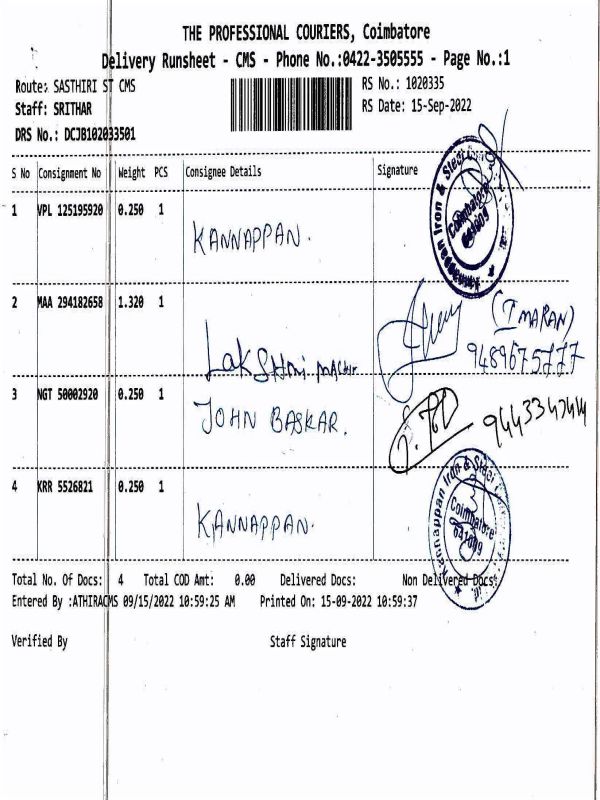 THE PROFESSIONAL COURIERS, Coimbatore
Delivery Runsheet - CMS - Phone No.:0422-3505555 - Page No.:1
Route: SASTHIRI ST CMS
RS No.: 1020335
Staff: SRITHAR
RS Date: 15-Sep-2022
DRS No.: DCJB102033501
S No Consignment No Weight PCS Consignee Details Signature
1 VPL 125195920 0.250 1 KANNAPPAN.
Kannappan Iron & Steel
Coimbatore
641009
2 MAA 294182658 1.320 1 LAKSHMI
(T MARAN)
9489675777
3 NGT 50002920 0.250 1 JOHN BASKAR.
4 KRR 5526821 0.250 1 KANNAPPAN.
Kannappan Iron & Steel
Coimbatore
641009
Total No. Of Docs: 4 Total COD Amt: 0.00 Delivered Docs: Non Delivered Docs:
Entered By :ATHIRACMS 09/15/2022 10:59:25 AM Printed On: 15-09-2022 10:59:37
Verified By Staff Signature